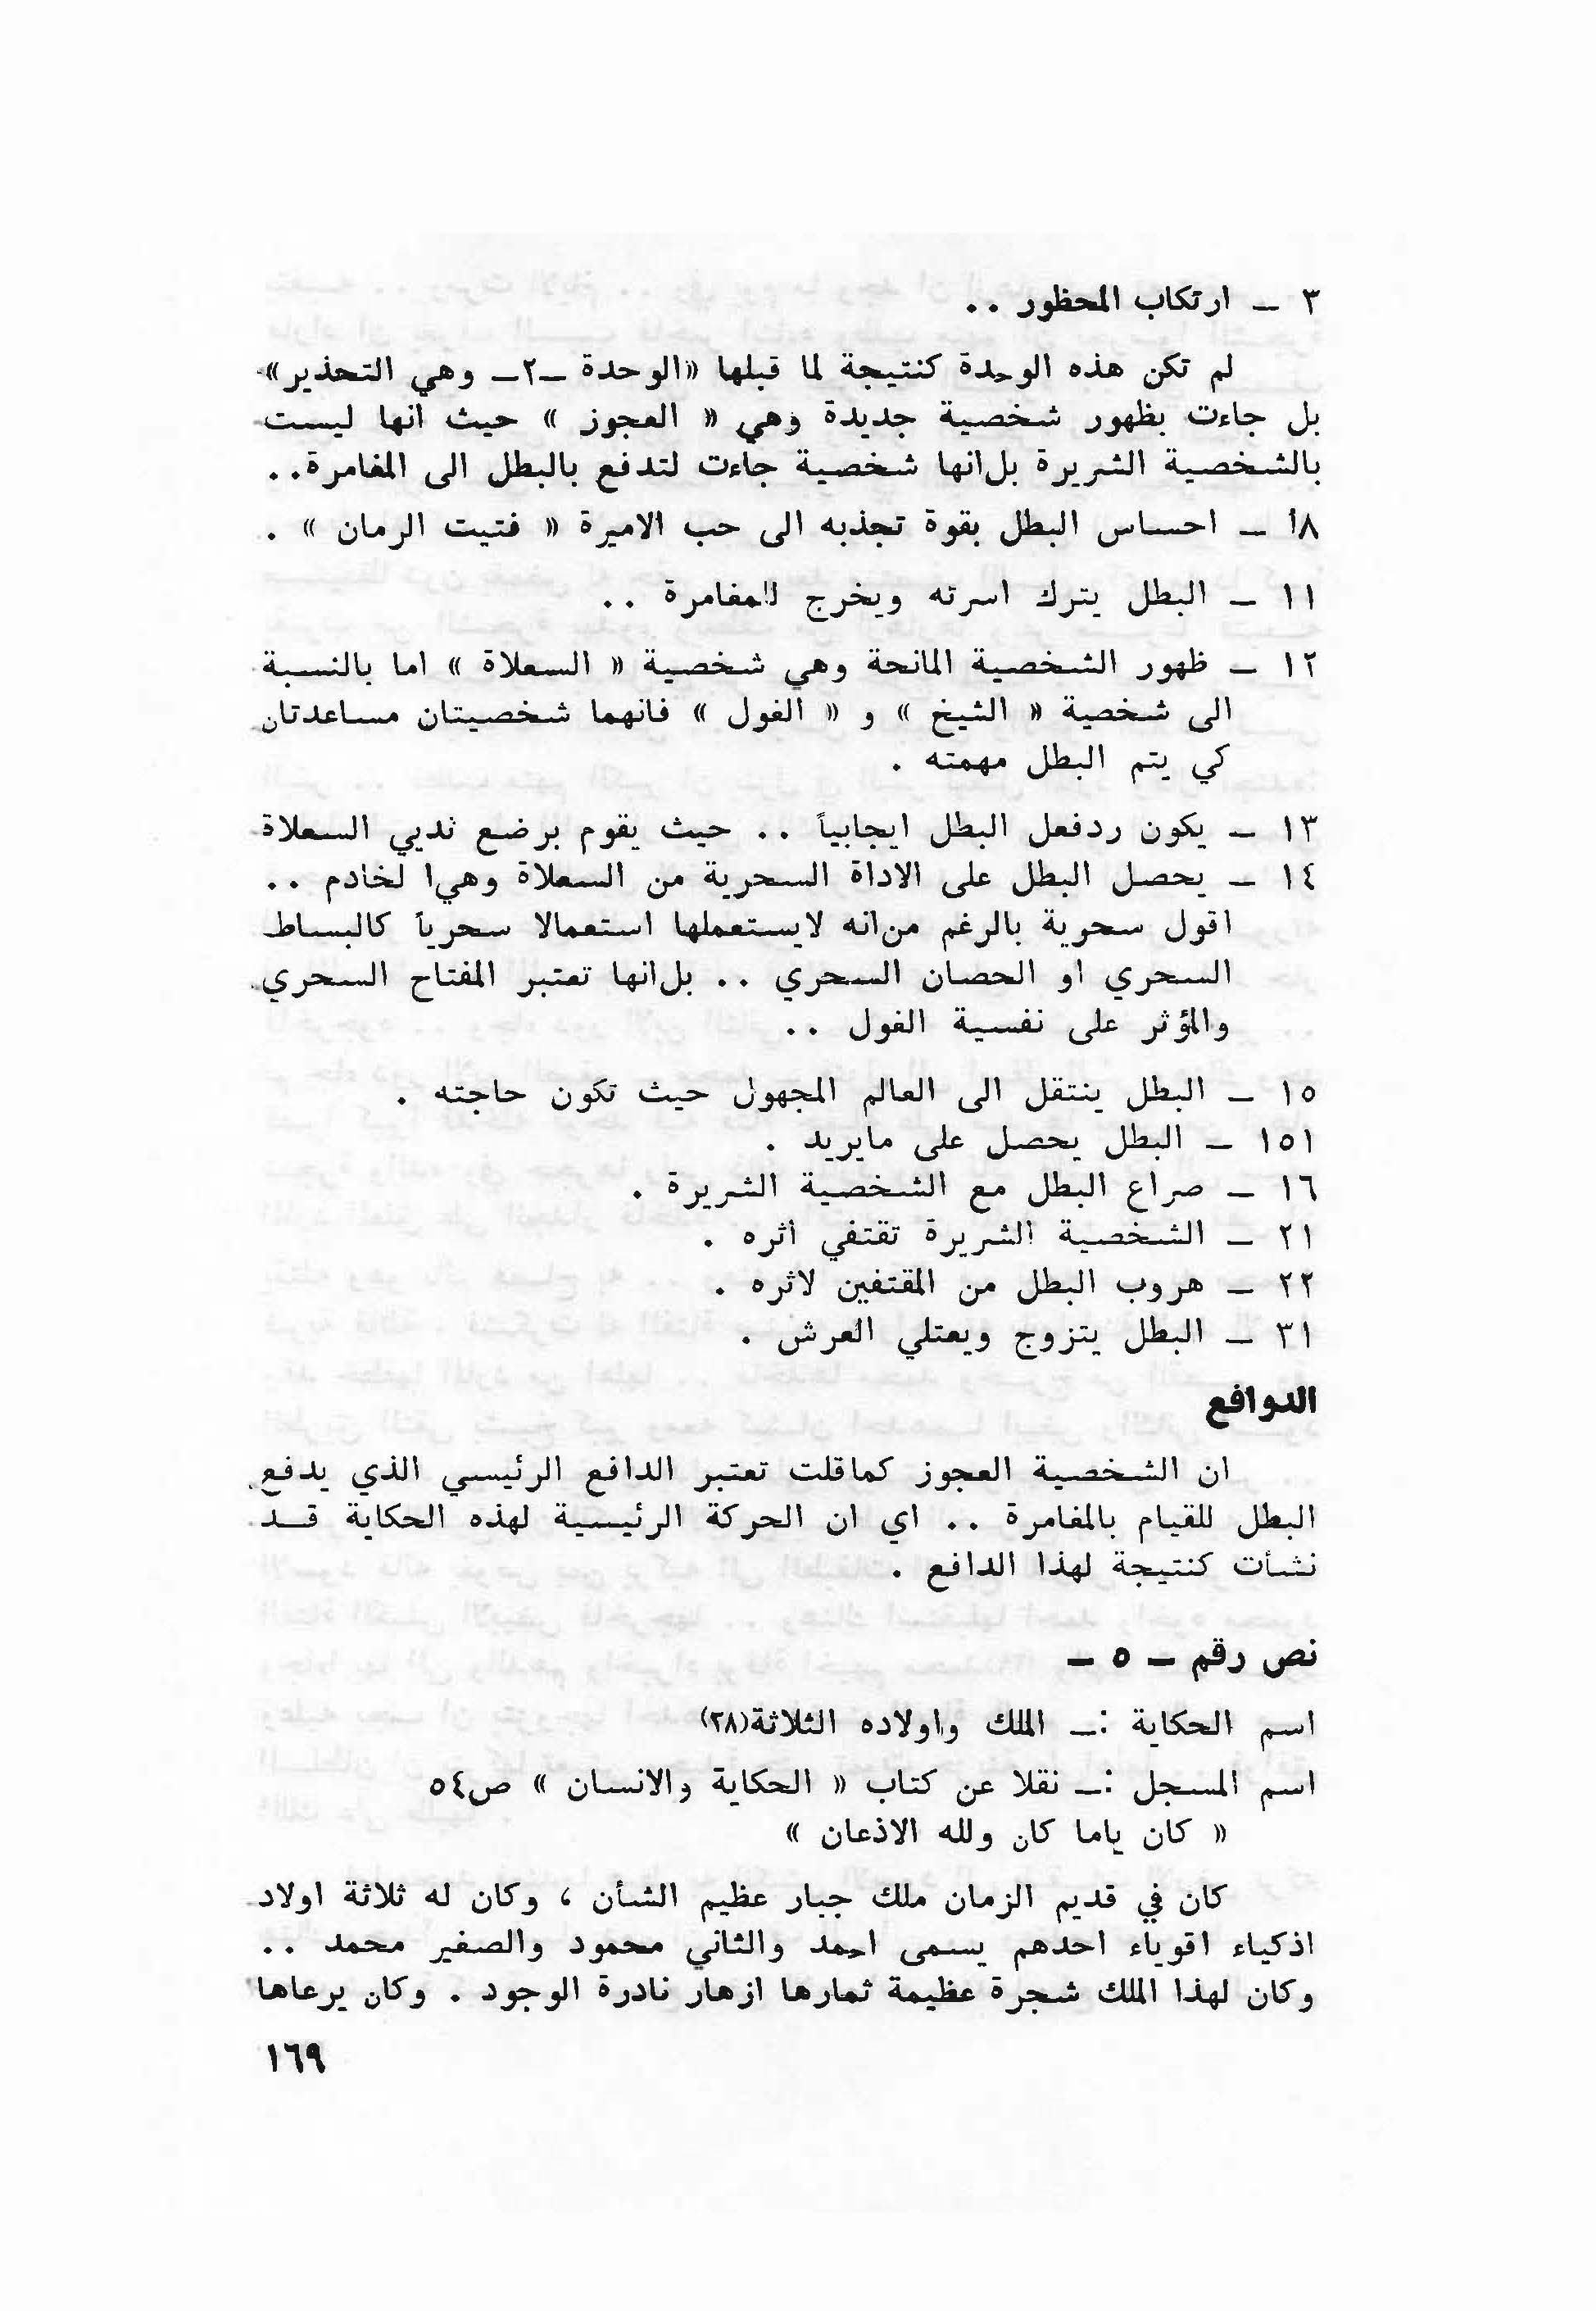 ٣ ــ ارتكاب المحظور ..
لم تكن هذه الوحدة كنتيجة لما قبلها «الوحدة ــ٢ــ وهي التحذير»
بل جاءت بظهور شخصية جديدة وهي « العجوز » حيث انها ليست
بالشخصية الشريرة بل انها شخصية جاءت لتدفع بالبطل الى المغامرة..
٨أ ــ احساس البطل بقوة تجذبه الى حب الاميرة « فتيت الرمان » .
١١ ــ البطل يترك اسرته ويخرج للمغامرة ..
١٢ ــ ظهور الشخصية المانحة وهي شخصية « السعلاة » اما بالنسبة
الى شخصية « الشيخ » و « الغول » فانهما شخصيتان مساعدتان
كي يتم البطل مهمته .
١٣ ــ يكون ردفعل البطل ايجابياً .. حيث يقوم برضع ثديي السعلاة
١٤ ــ يحصل البطل على الاداة السحرية من السعلاة وهي ا لخادم ..
اقول سحوية بالرغم من انه لايستعملها استعمالا سحرياً كالبساط
السحري او الحصان السحري .. بل انها تعتبر المفتاح السحري
والمؤثر على نفسية الغول ..
١٥ ــ البطل ينتقل الى العالم المجهول حيث تكون حاجته .
١٥ا ــ البطل يحصل على مايريد .
١٦ ــ صراع البطل مع الشخصية الشريرة .
٢١ ــ الشخصية الشريرة تقتفي أثره .
٢٢ ــ هروب البطل من المقتفين لاثره .
٣١ ــ البطل يتزوج ويعتلي العرش .
الدوافع
ان الشخصية العجوز كماقلت تعتبر الدافع الرئيسي الذي يدفع
البطل للقيام بالمغامرة .. اي ان الحركة الرئيسية لهذه الحكاية قــد
نشأت كنتيجة لهذا الدافع .
نص رقم ــ ٥ ــ
اسم الحكاية :ــ الملك واولاده الثلاثة(٢٨)
اسم المسجل :ــ نقلا عن كتاب « الحكاية والانسان » ص٥٤
« كان ياما كان ولله الاذعان »
كان في قديم الزمان ملك جبار عظيم الشأن ، وكان له ثلاثة اولاد
اذكياء اقوياء احدهم يسمى احمد والثاني محمود والصغير محمد ..
وكان لهذا الملك شجرة عظيمة ثمارها ازهار نادرة الوجود . وكان يرعاها
١٦٩